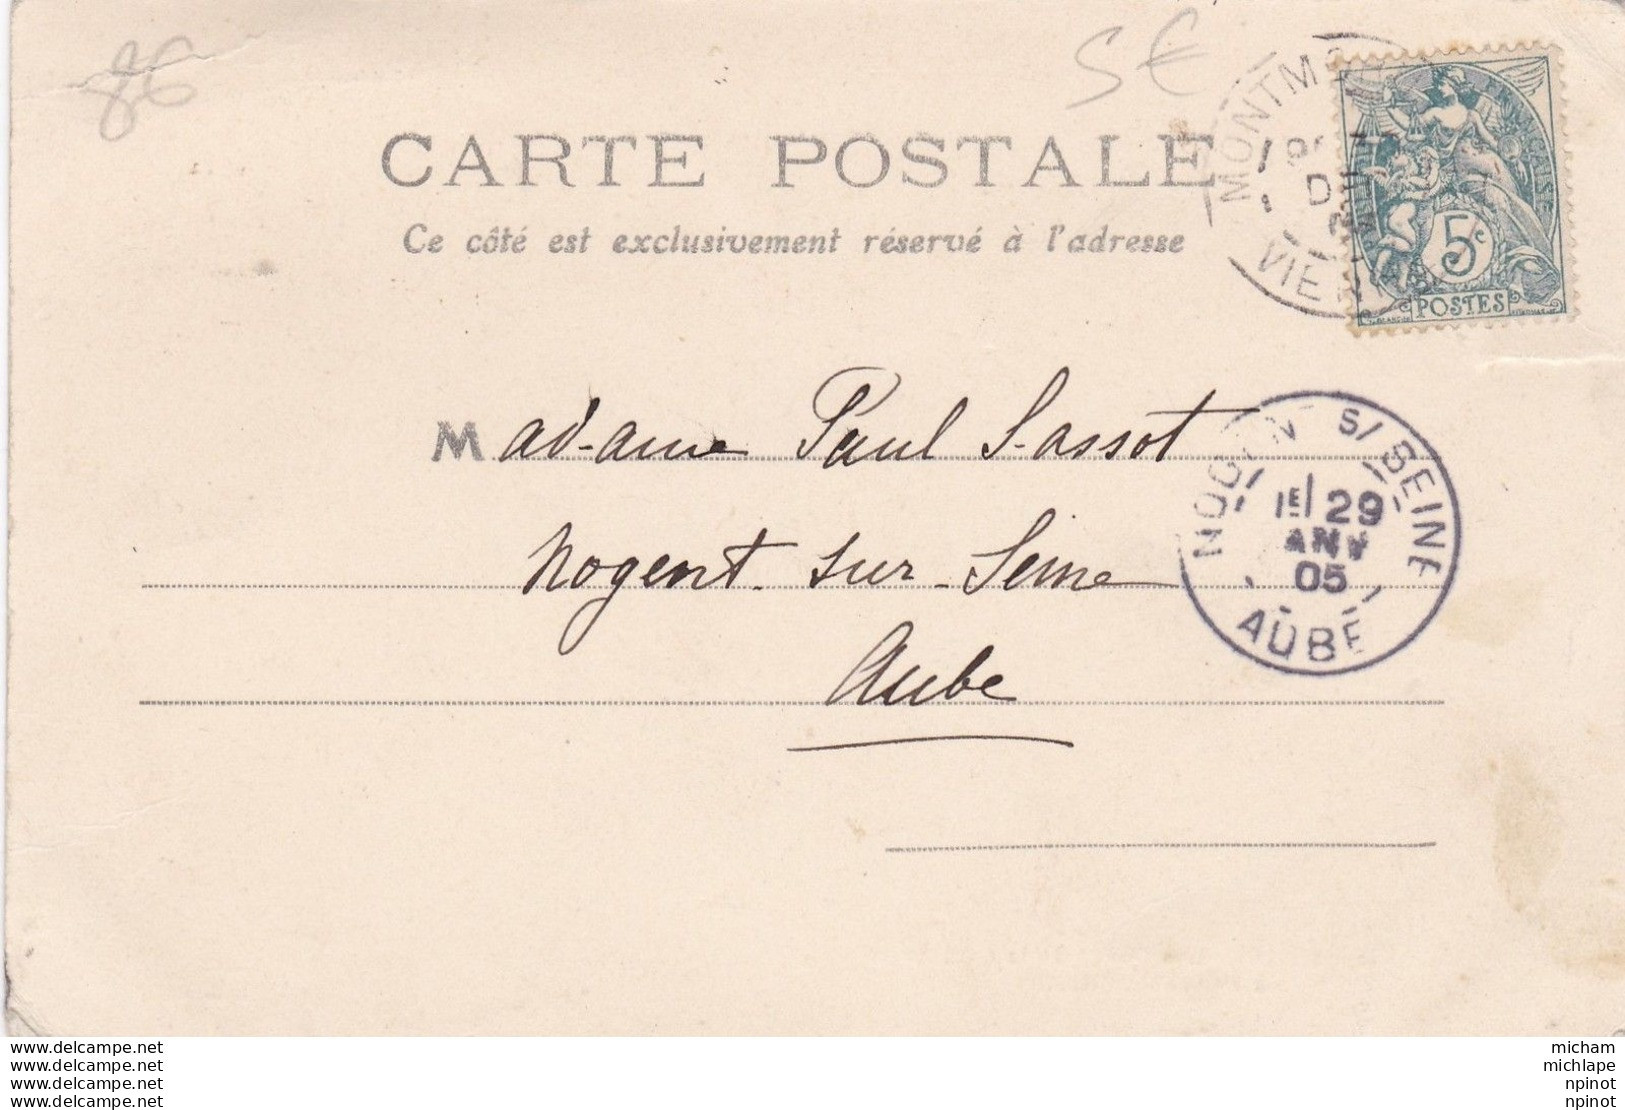 86
5€
CARTE POSTALE
Ce côté est exclusivement réservé à l'adresse
VIE
5c
POSTES
Madame Paul Sassot
Nogent-sur-Seine
Aube
S/SEINE
1E/ 29
05
AUBE
www.delcampe.net
www.delcampe.net
www.delcampe.net
www.delcampe.net
micham
michlape
npinot
npinot